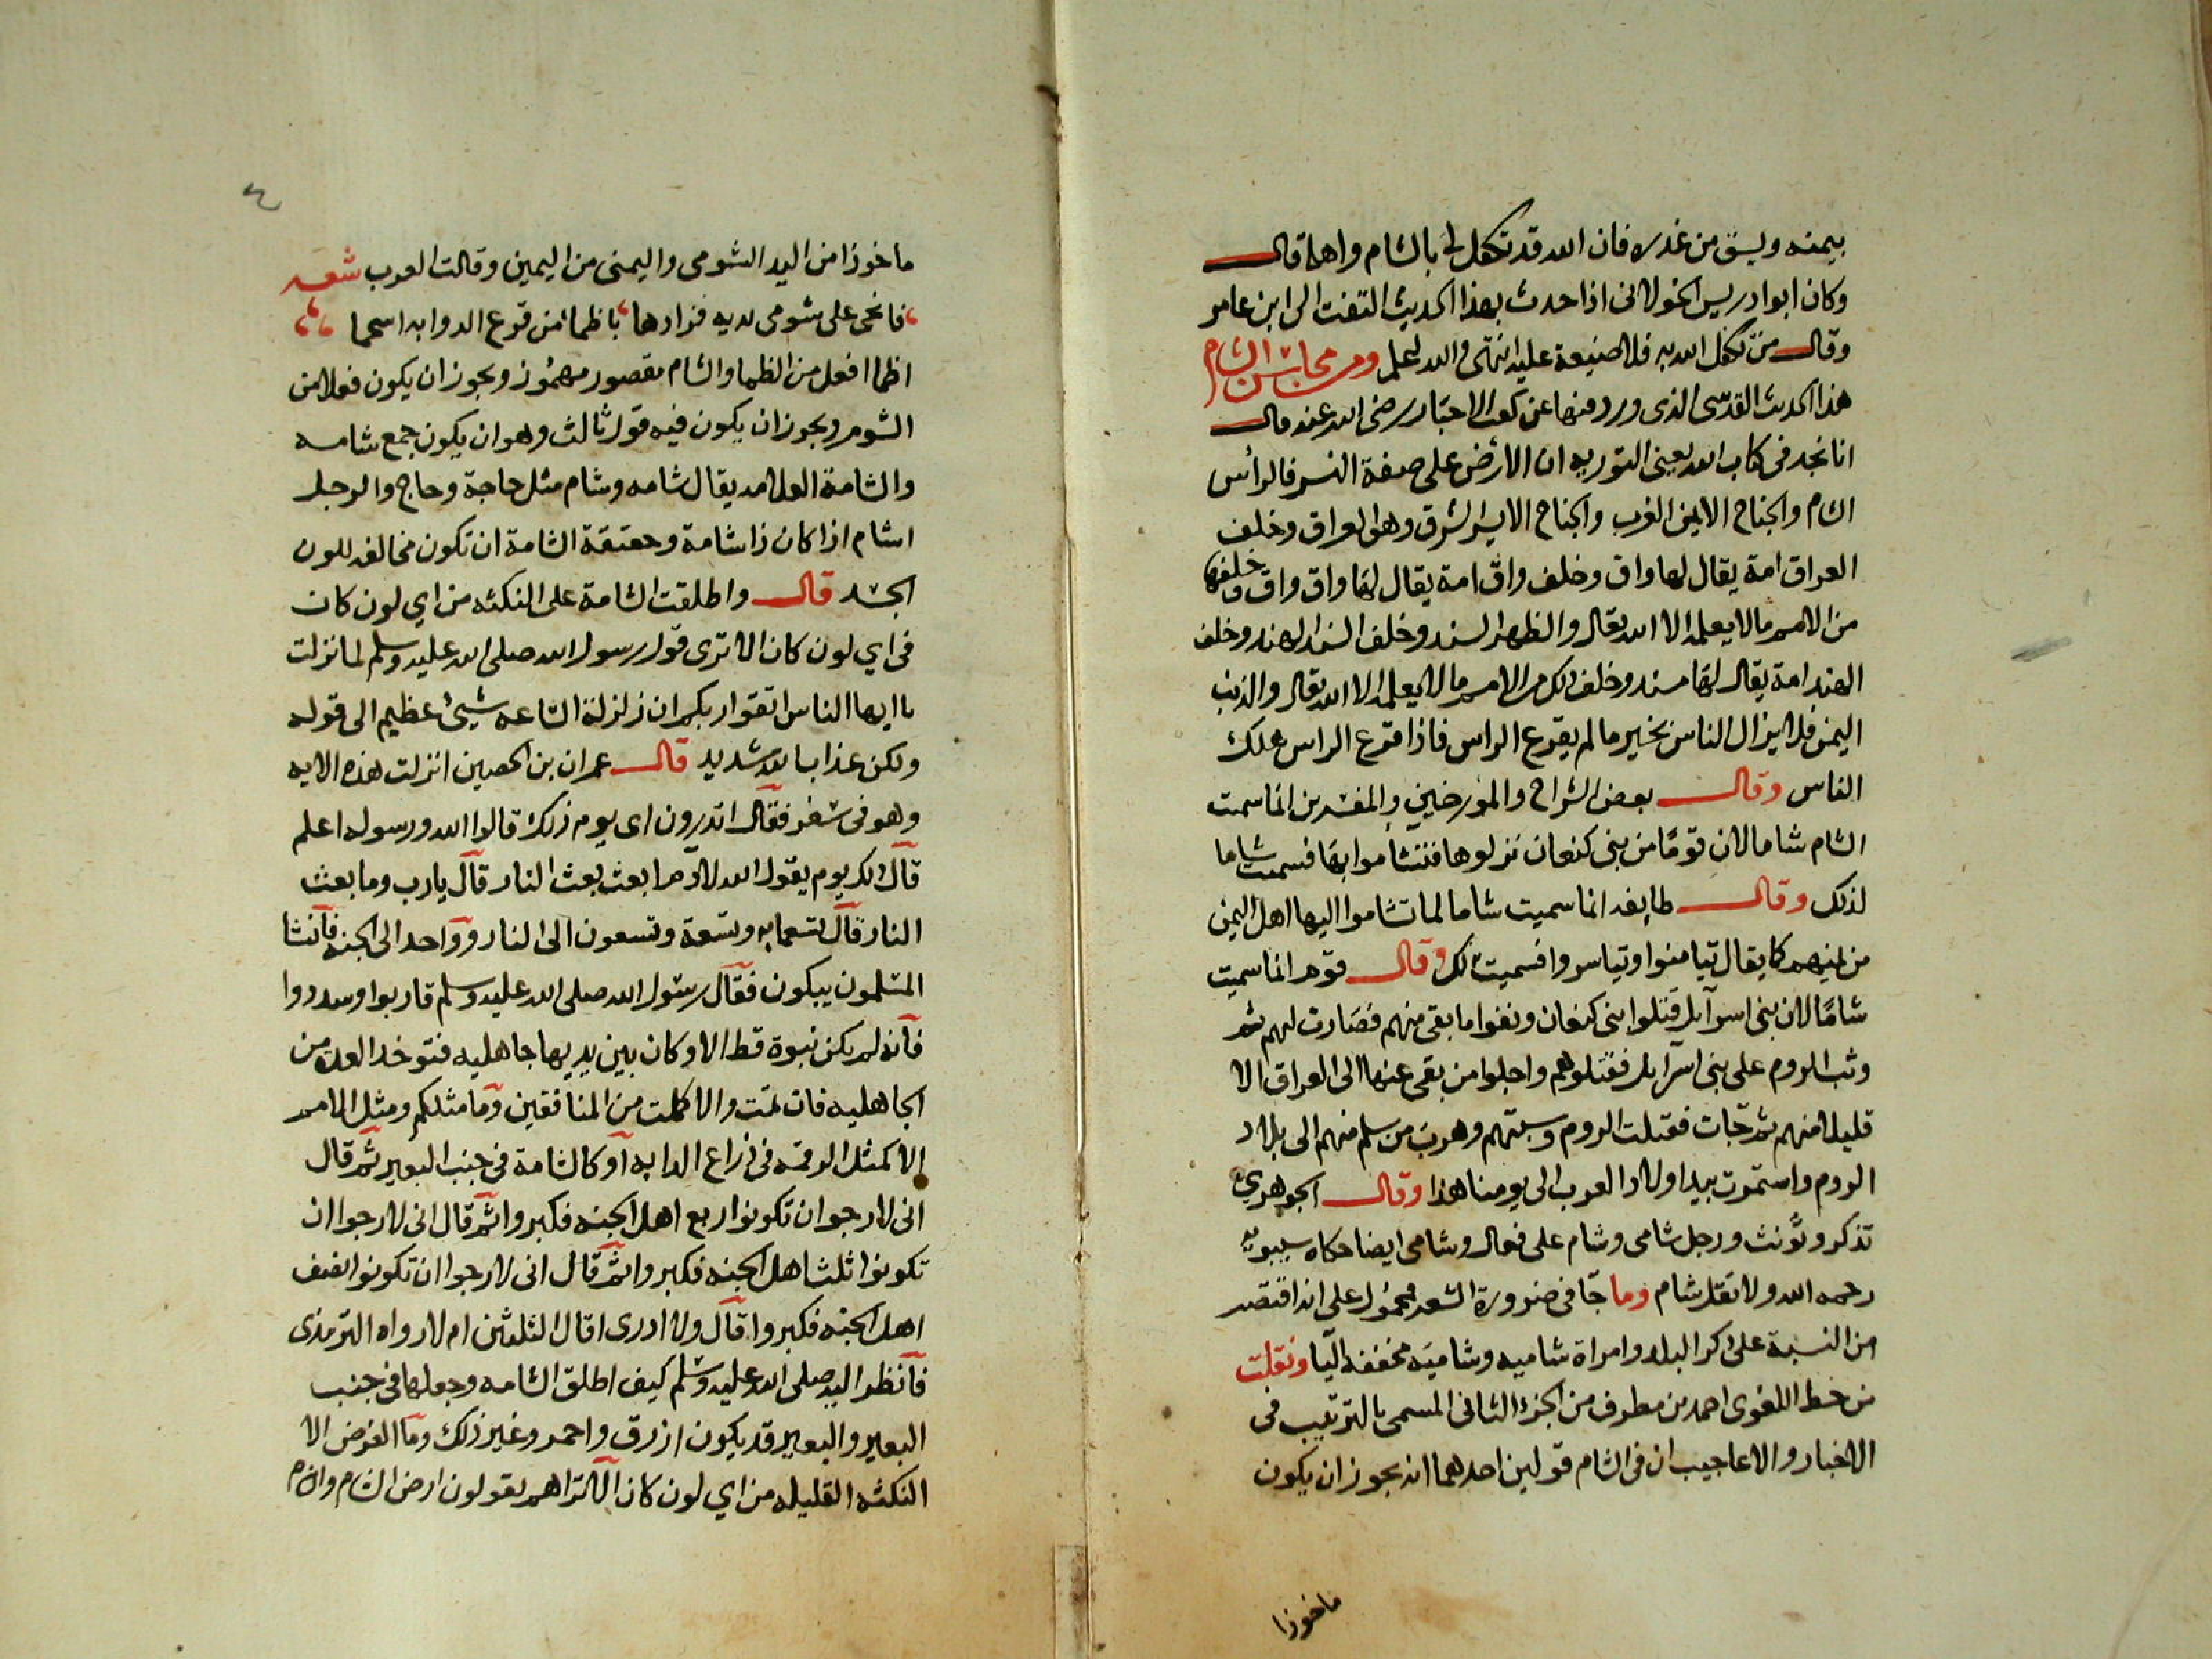 بيمنه وليسق من غدره فان الله قد تكفل لي بالشام واهله قال
وكان ابو ادريس الخولاني اذا حدث بهذا الحديث التفت الى ابن عامر
وقال من تكفل الله به فلا ضيعة عليه انتهى والله اعلم ومن محاسن الشام
هذا الحديث القدسي الذي ورد منها عن كعب الاحبار رضي الله عنه قال
انا نجد في كتاب الله يعني التوريه ان الارض على صفة النسر فالرأس
الشام والجناح الايمن الغرب والجناح الايسر الشرق وهو العراق وخلف
العراق امة يقال لها واق وخلف واق امة يقال لها واق واق وخلفها
من الامم ما لا يعلمه الا الله تعالى والظهر السند وخلف السند الهند وخلف
الهند امة يقال لها مسند وخلف ذلك من الامم ما لا يعلمه الا الله تعالى والذنب
اليمن فلا يزال الناس بخير ما لم يقرع الراس فاذا قرع الراس هلك
الناس وقال بعض الشراح والمورخين والمفسرين انما سميت
الشام شاما لان قومًا من بني كنعان نزلوها فتشاموا بها فسميت شاما
لذلك وقال طايفه انما سميت شاما لما تشاموا اليها اهل اليمن
من يمنهم كما يقال تيامنوا وتياسروا فسميت لذلك وقال قوم انما سميت
شامًا لان بني اسرآيل قتلوا بني كنعان ونفوا ما بقي منهم فصارت لهم ثم
وثب الروم على بني اسرآيل فقتلوهم واجلوا من بقي عنها الى العراق الا
قليلا منهم ثم جات فقتلت الروم وسبتهم وهرب من سلم منهم الى بلاد
الروم واستمرت بيد اولاد العرب الى يومنا هذا وقال الجوهري
تذكر وتؤنث ورجل شامي وشام على فعال وشامي ايضا حكاه سيبويه
رحمه الله ولا تقل شام وما جا في ضرورة الشعر فمحمول على انه اقتصر
من النسبة على ذكر البلد وامراة شاميه وشاميه مخففه اليا ونقلت
من خط اللغوي احمد بن مطرف من الجزء الثاني المسمى بالترتيب في
الاخبار والاعاجيب ان في الشام قولين احدهما انه يجوز ان يكون
ماخوذا
٤
ماخوذا من اليد الشومى واليمنى من اليمين وقالت العرب شعر
فانحى على شومى يديه فزادها باظمأ من قرع الدوابه اسحما
اظما افعل من الظما والشام مقصور مهموز ويجوز ان يكون فعلا من
الشوم ويجوز ان يكون فيه قول ثالث وهو ان يكون جمع شامه
والشامة العلامه يقال شامه وشام مثل حاجة وحاج والرجل
اشام اذا كان ذا شامة وحقيقة الشامة ان تكون مخالفه للون
الجسد قال واطلقت الشامة على النكته من اي لون كان
في اي لون كان الا ترى قول رسول الله صلى الله عليه وسلم لما نزلت
يا ايها الناس اتقوا ربكم ان زلزلة الساعه شيئ عظيم الى قوله
ولكن عذاب الله شديد قال عمران بن الحصين انزلت هذه الايه
وهو في سفر فقال اتدرون اي يوم ذلك قالوا الله ورسوله اعلم
قال ذلك يوم يقول الله لادم ابعث بعث النار قال يارب وما بعث
النار قال تسعمايه وتسعة وتسعون الى النار وواحد الى الجنه فانشا
المسلمون يبكون فقال رسول الله صلى الله عليه وسلم قاربوا وسددوا
فانه لم يكن نبوة قط الا وكان بين يديها جاهليه فتوخذ العدد من
الجاهليه فان تمت والا كملت من المنافقين وما مثلكم ومثل الامم
الا كمثل الرقمه في ذراع الدابه او كالشامة في جنب البعير ثم قال
اني لارجو ان تكونوا ربع اهل الجنه فكبروا ثم قال اني لارجوا ان
تكونوا ثلث اهل الجنه فكبروا ثم قال اني لارجوا ان تكونوا نصف
اهل الجنه فكبروا قال ولا ادرى اقال الثلثين ام لا رواه الترمذي
فانظر اليه صلى الله عليه وسلم كيف اطلق الشامه وجعلها في جنب
البعير والبعير قد يكون ازرق واحمر وغير ذلك وما الغرض الا
النكته القليله من اي لون كان الا تراهم يقولون ارض الشام والشام